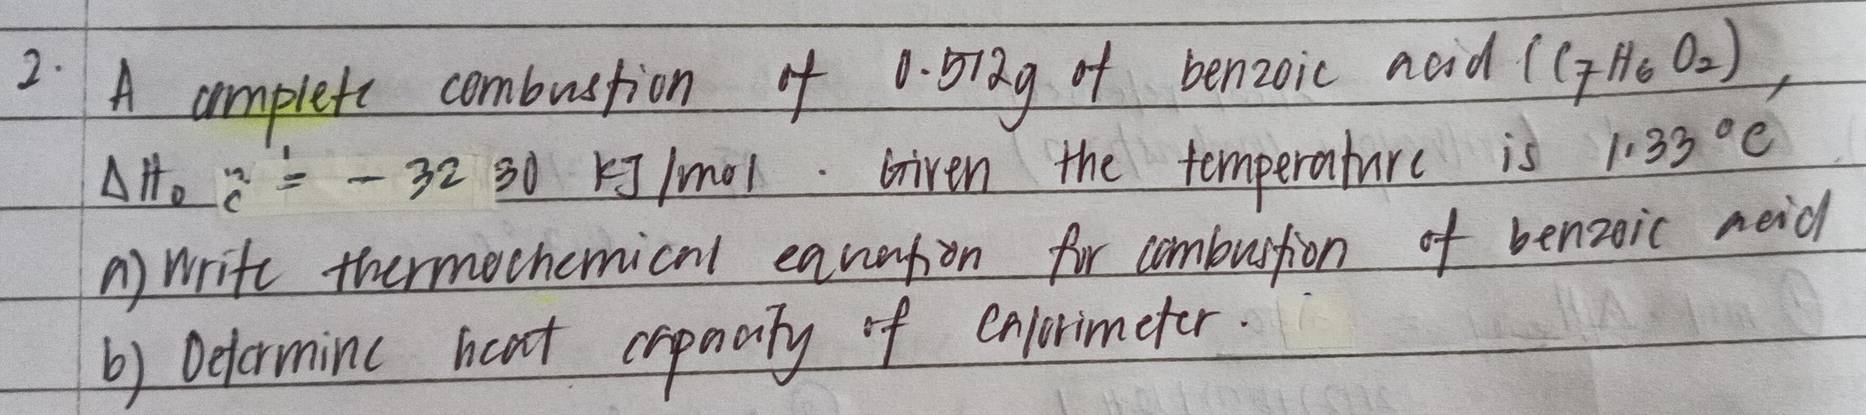 2. A complete combustion of 0.512g of benzoic acid (C7H6O2),
ΔH° c = - 3230 kJ/mol. Given the temperature is 1.33°C
a) Write thermochemical equation for combustion of benzoic acid
b) Determine heat capacity of calorimeter.